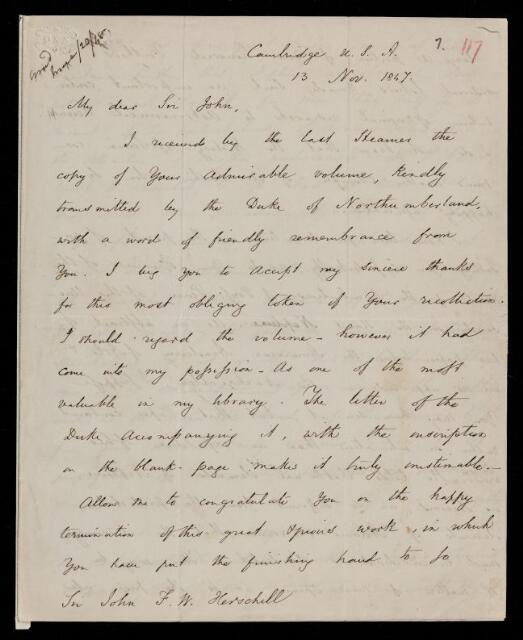 7. 117
Cambridge U. S. A.
13 Nov. 1847.
My dear Sir John,
I received by the last Steamer the
copy of Your Admirable volume, kindly
transmitted by the Duke of Northumberland,
with a word of friendly remembrance from
You. I beg you to accept my sincere thanks
for this most obliging token of Your recollection.
I should regard the volume - however it had
come into my possession - As one of the most
valuable in my library. The letter of the
Duke Accompanying it, with the inscription
on the blank-page makes it truly inestimable.-
Allow me to congratulate You on the happy
termination of this great work, in which
You have put the finishing hand to so
Sir John F. W. Herschell